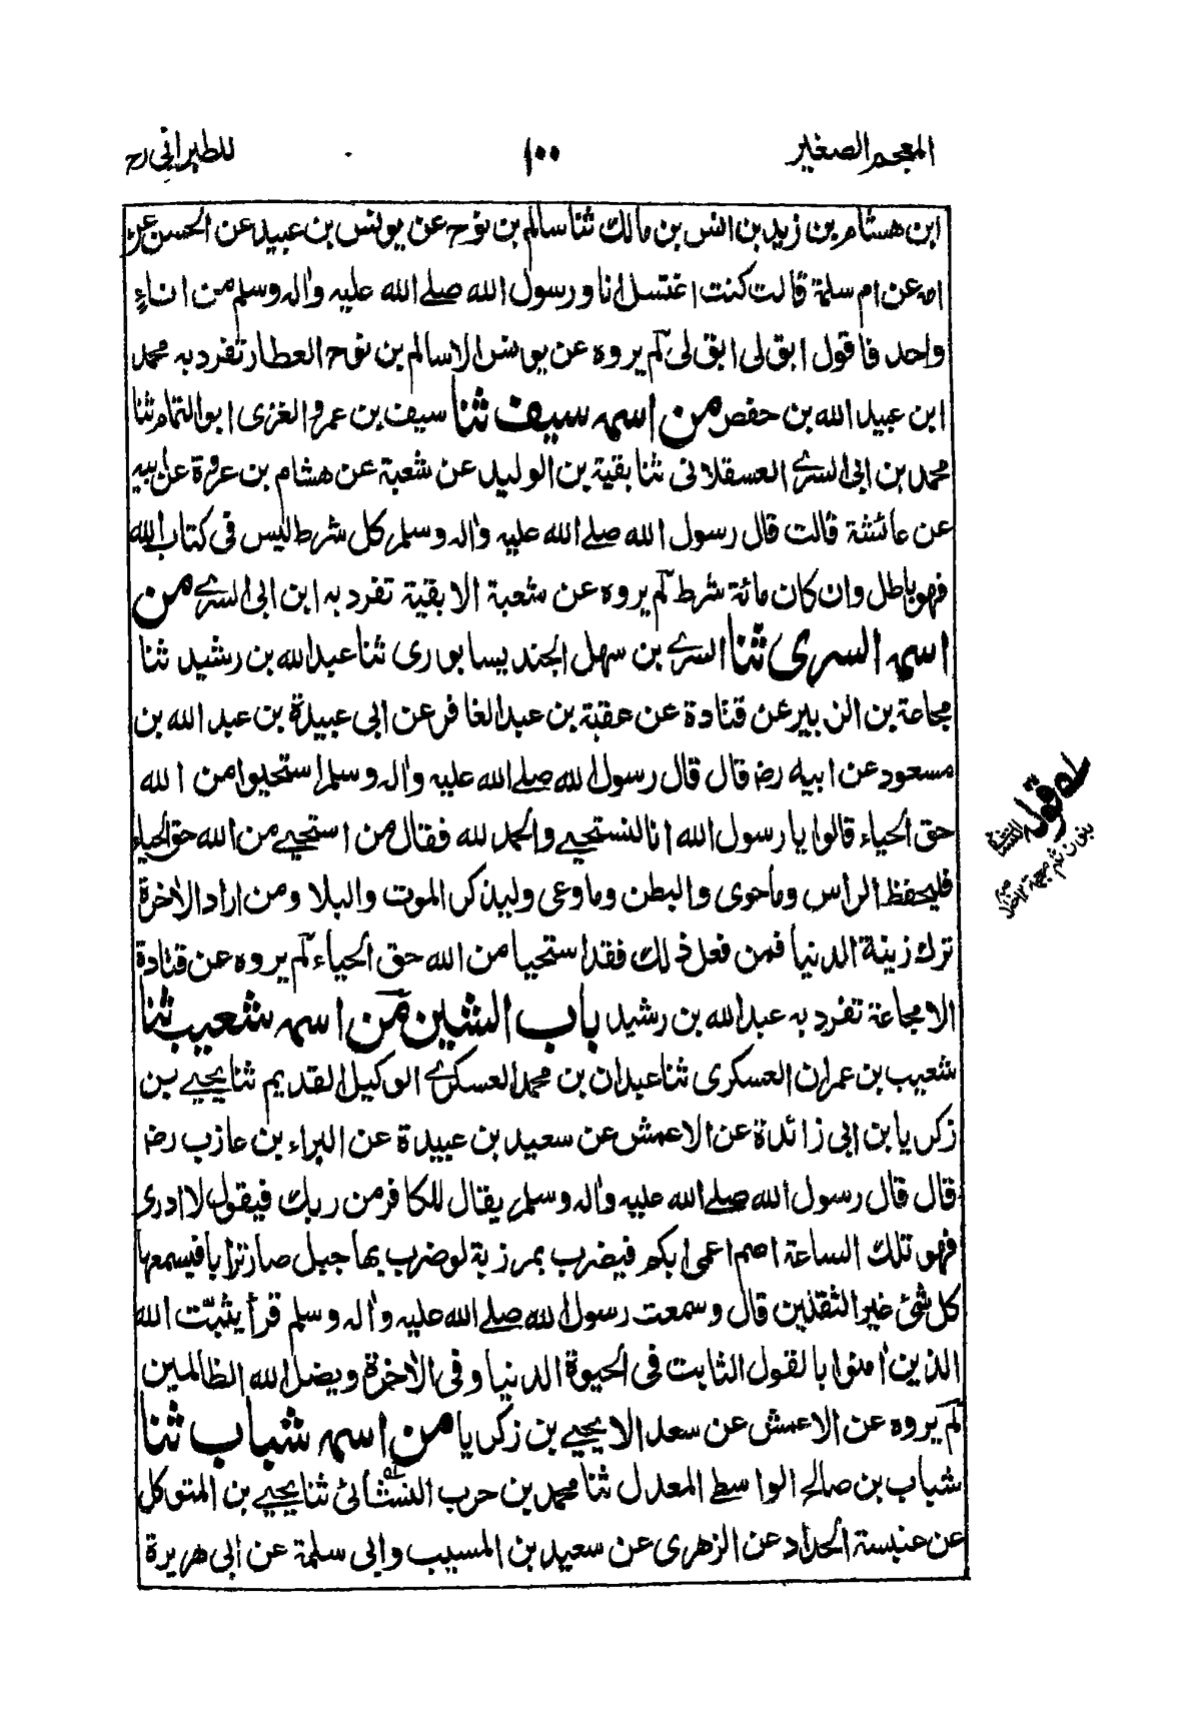 المعجم الصغير ١٠٠ للطبراني رح
ابن هشام بن زيد بن انس بن مالك ثنا سالم بن نوح عن يونس بن عبيد عن الحسن عن
امه عن ام سلمة قالت كنت اغتسل انا ورسول الله صلے الله عليه واٰله وسلم من اناءٍ
واحد فاقول ابق لى ابق لى لم يروه عن يونس الا سالم بن نوح العطار تفرد به محمد
ابن عبيد الله بن حفص من اسمه سيف ثنا سيف بن عمرو الغزى ابو التمام ثنا
محمد بن ابى السرے العسقلانى ثنا بقية بن الوليد عن شعبة عن هشام بن عروة عن ابيه
عن عائشة قالت قال رسول الله صلے الله عليه واٰله وسلم كل شرط ليس فى كتاب الله
فهو باطل وان كان مائة شرط لم يروه عن شعبة الا بقية تفرد به ابن ابى السرے من
اسمه السرى ثنا السرے بن سهل الجنديسابورى ثنا عبد الله بن رشيد ثنا
مجاعة بن الزبير عن قتادة عن عقبة بن عبد الغافر عن ابى عبيدة بن عبد الله بن
مسعود عن ابيه رضہ قال قال رسول الله صلے الله عليه واٰله وسلم استحيوا من الله
حق الحياء قالوا يا رسول الله انا لنستحيے والحمد لله فقال من استحيے من الله حق الحياء
فليحفظ الراس وما حوى والبطن وما وعى وليذكر الموت والبلا ومن اراد الاٰخرة
ترك زينة الدنيا فمن فعل ذلك فقد استحيا من الله حق الحياء لم يروه عن قتادة
الا مجاعة تفرد به عبد الله بن رشيد باب الشين من اسمه شعيب ثنا
شعيب بن عمران العسكرى ثنا عبدان بن محمد العسكرے الوكيل القديم ثنا يحيے بن
زكريا بن ابى زائدة عن الاعمش عن سعيد بن عبيدة عن البراء بن عازب رضہ
قال قال رسول الله صلے الله عليه واٰله وسلم يقال للكافر من ربك فيقول لا ادرى
فهو تلك الساعة اصم اعمى ابكم فيضرب بمرزبة لو ضرب بها جبل صار ترابا فيسمعها
كل شئ غير الثقلين قال وسمعت رسول الله صلے الله عليه واٰله وسلم قرأ يثبّت الله
الذين اٰمنوا بالقول الثابت فى الحيوة الدنيا وفى الاٰخرة ويضل الله الظالمين
لم يروه عن الاعمش عن سعد الا يحيے بن زكريا من اسمه شباب ثنا
شباب بن صالح الواسطے المعدل ثنا محمد بن حرب النشائى ثنا يحيے بن المتوكل
عن عنبسة الحداد عن الزهرى عن سعيد بن المسيب وابى سلمة عن ابى هريرة
له قوله
بنون ثم معجمة